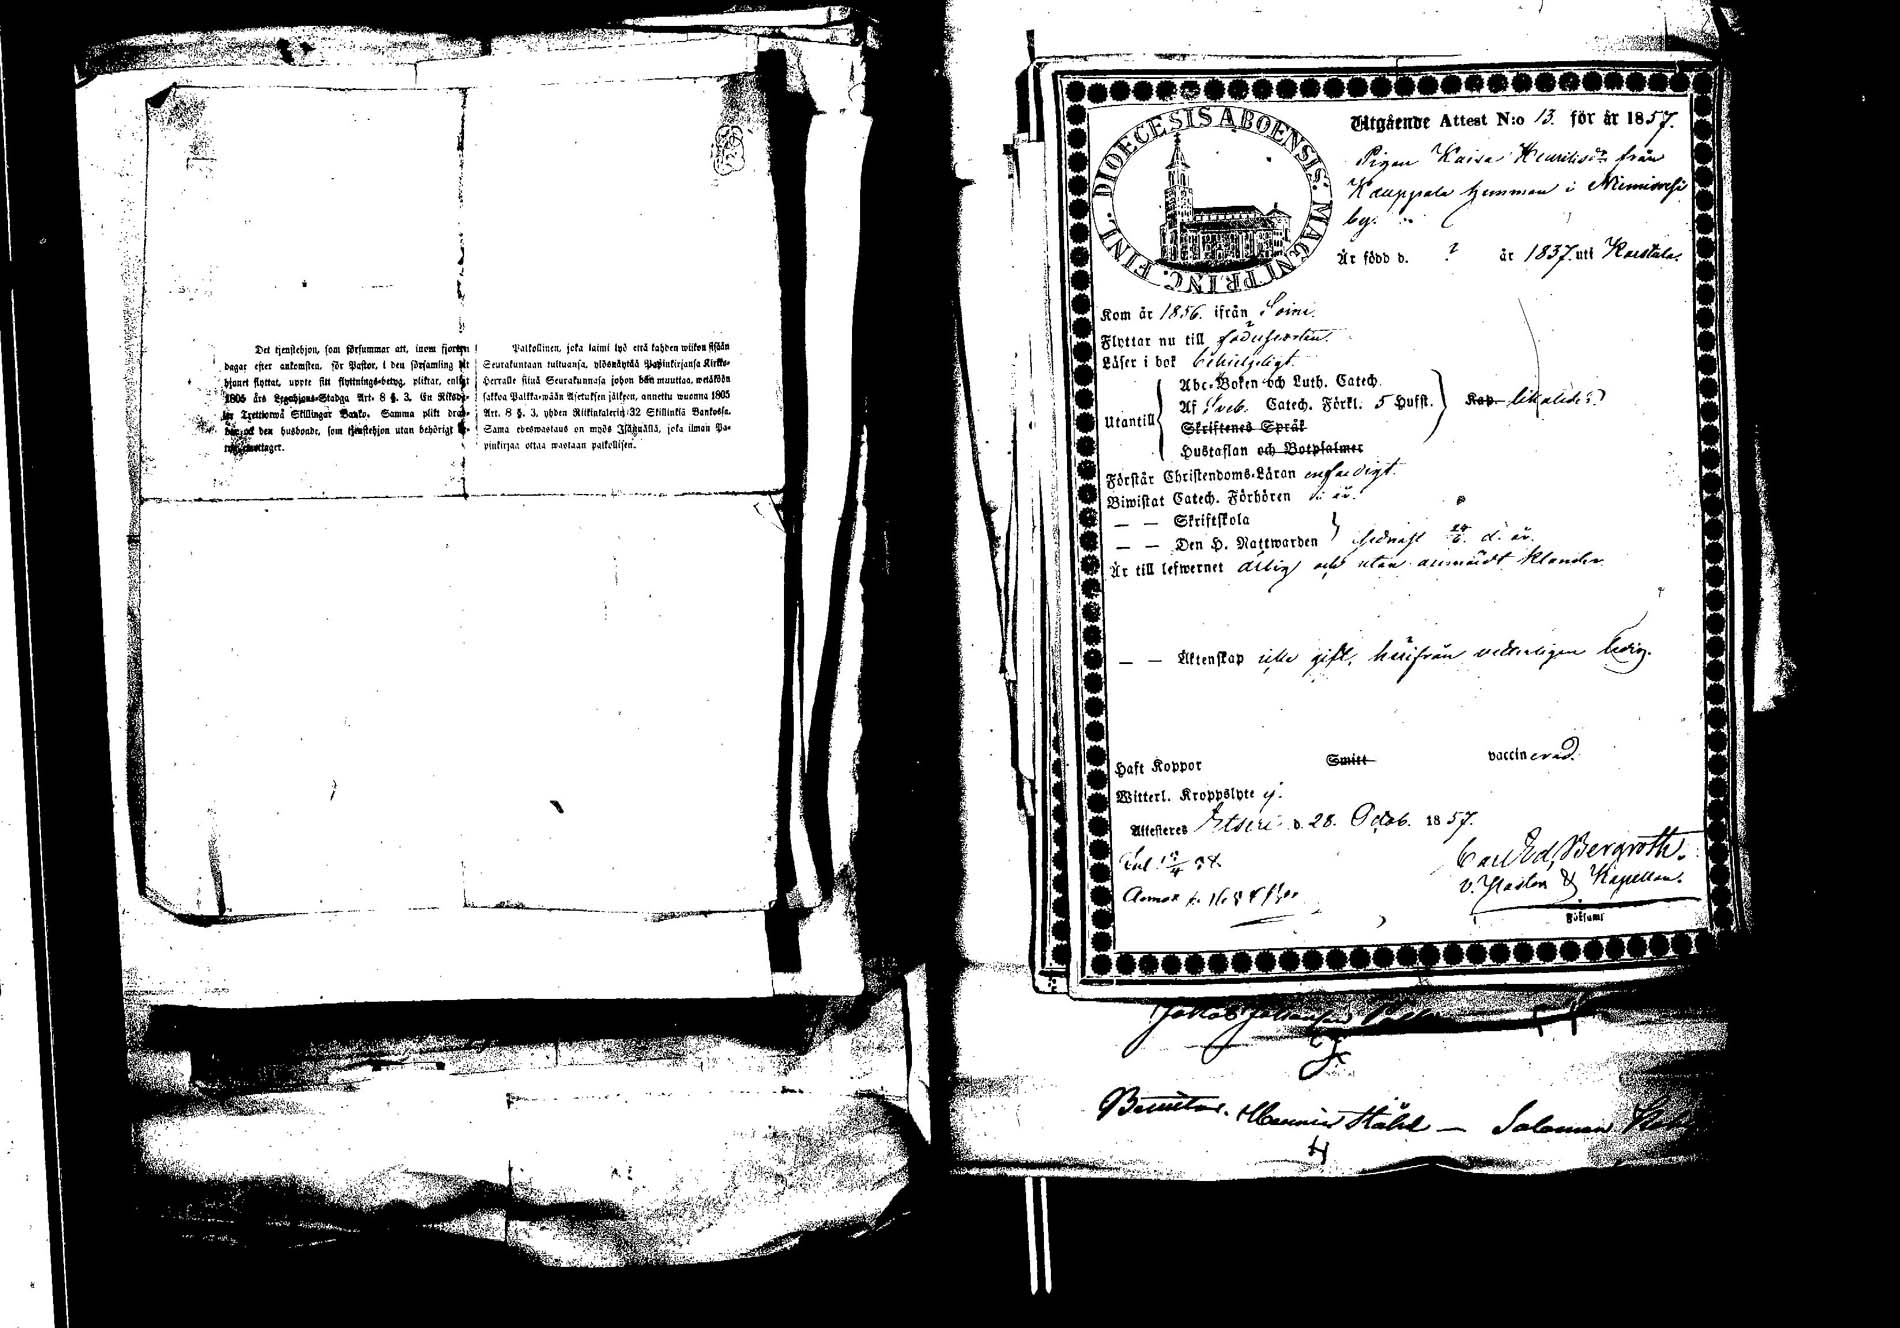 Det tjenstehjon, som försummar att, inom fjorton
dagar efter ankomsten, för Pastor, i den församling dit
hjonet flyttat, uppte sitt flyttnings-betyg, pliktar, enligt
1805 års Legohjons-Stadga Art. 8 §. 3. En Riksda-
ler Trettiotwå Skillingar Banko. Samma plikt drab-
bar ock den husbonde, som tjenstehjon utan behörigt be-
tyg emottager.
Palkollinen, joka laimi lyö että kahden wiikon sisään
Seurakuntaan tultuansa, ylösnäyttää Papinkirjansa Kirkko-
Herralle siinä Seurakunnasa johon hän muuttaa, wetäköön
sakkoa Palkka-wään Asetuksen jälkeen, annettu wuonna 1805
Art. 8 §. 3. yhden Riikintalerin 32 Skillinkiä Bankossa.
Sama edeswastaus on myös Isännällä, joka ilman Pa-
pinkirjaa ottaa wastaan palkollisen.
DIOECESIS ABOENSIS. MAGNI PRINC. FINL.
Utgående Attest N:o 13. för år 1857.
Pigan Kaisa Henriksdr från
Kauppala hemman i Niemisvesi
by.
Är född d. ? år 1837. uti Karstula.
Kom år 1856. ifrån Soini.
Flyttar nu till födelseorten.
Läser i bok behjelpligt.
Abc-Boken och Luth. Catech.
Utantill
Af Sveb. Catech. Förkl. 5 Hufst.
Kap.
Skriftenes Språk
Hustaflan och Botpsalmer
Förstår Christendoms-Läran enfaldigt.
Biwistat Catech. Förhören i år.
— — Skriftskola
— — Den H. Nattwarden sednast 24/6. d. år.
Är till lefwernet ärlig och utan anmärdt klander
— — Äktenskap icke gift, härifrån vetterligen ledig.
Haft Koppor Smitt vaccinerad.
Witterl. Kroppslyte ej.
Attesteres Etseri d. 28. Octob. 1857.
Carl Ed. Bergroth.
v. Pastor & Kapellan.
Boksamt
Salomon